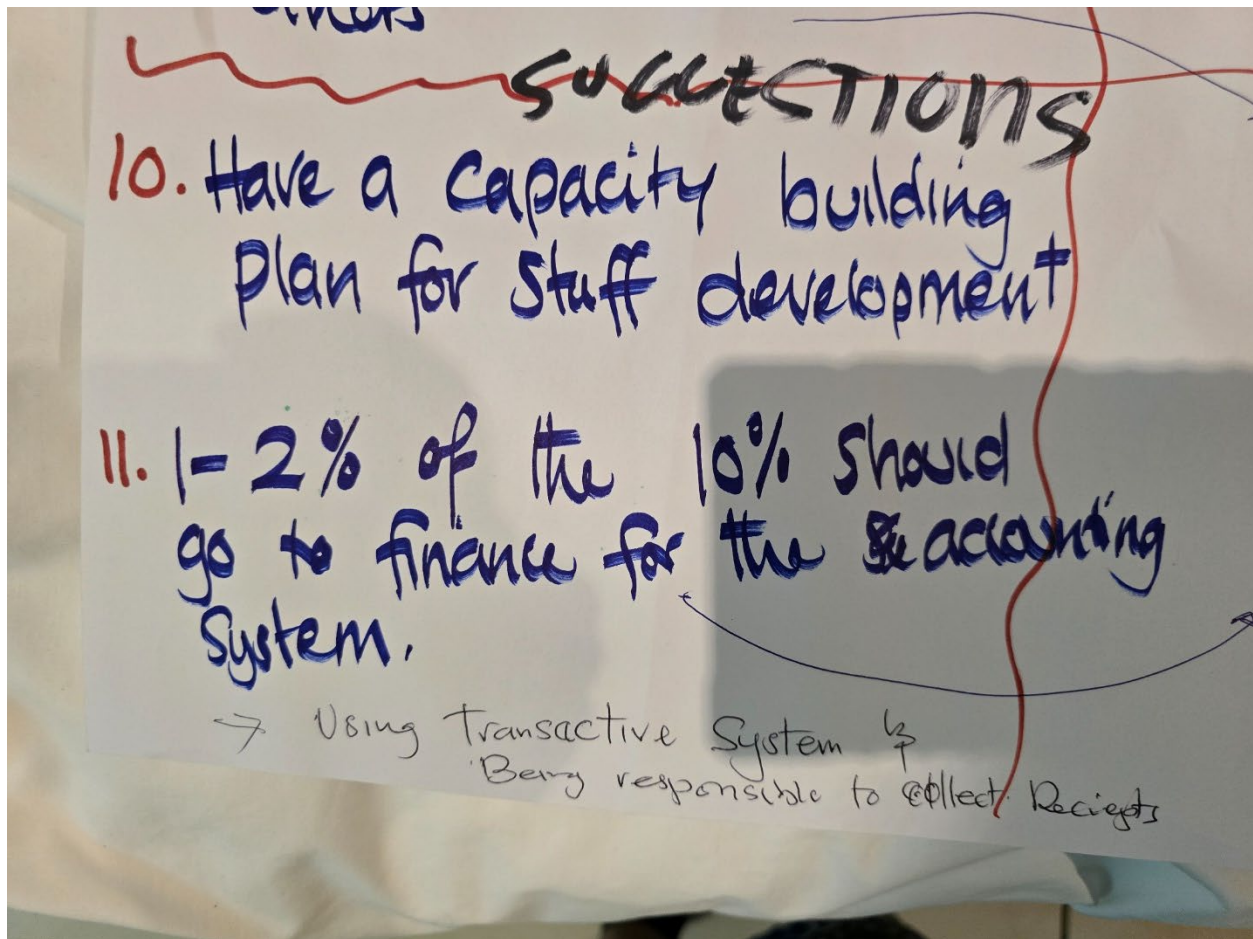 SUGGECTIONS
10. Have a capacity building
plan for stuff development
11. 1-2% of the 10% should
go to finance for the accounting
system.
→ Using Transactive System &
Being responsible to collect Reciepts